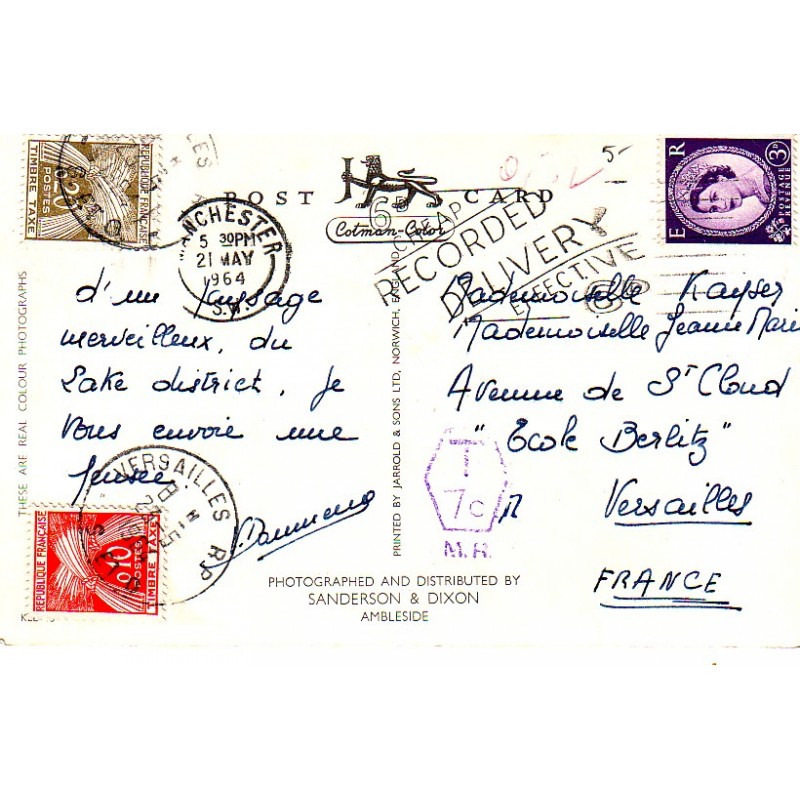 POST CARD
Cotman-Color
REPUBLIQUE FRANÇAISE
0,20
POSTES
TIMBRE TAXE
MANCHESTER
5 30PM
21 MAY
1964
S.W.
6D
CHEAP
RECORDED
DELIVERY
EFFECTIVE
5-
E R
3D
POSTAGE
REVENUE
THESE ARE REAL COLOUR PHOTOGRAPHS
d'un paysage
merveilleux, du
Lake district, je
vous envoie une
pensée.
PRINTED BY JARROLD & SONS LTD, NORWICH, ENGLAND
Mademoiselle Kayser
Mademoiselle Jeanne Marie
Avenue de St Cloud
"Ecole Berlitz"
Versailles
FRANCE
T
7c
M.R.
VERSAILLES R.P
REPUBLIQUE FRANÇAISE
0,10
POSTES
TIMBRE TAXE
PHOTOGRAPHED AND DISTRIBUTED BY
SANDERSON & DIXON
AMBLESIDE